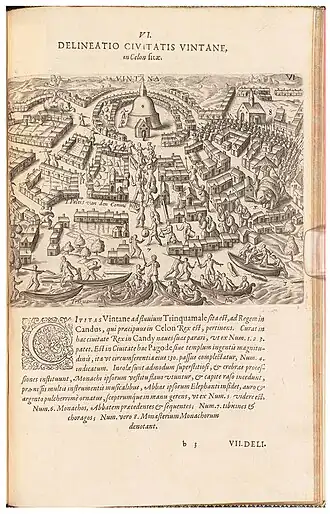 VI.
DELINEATIO CIVITATIS VINTANE,
in Celon sitæ.
VINTANA
VI
Pelais van den Coninck
CIVITAS Vintane ad fluvium Trinquamale sita est, ad Regem in
Candus, qui præcipuus in Celon Rex est, pertinens. Curat in
hac civitate Rex in Candy naves suas parari, vt ex Num. 1. 2. 3.
patet. Est in Civitate hac Pagodæ sive templum ingentis magnitu-
dinis, ita vt circumferentia eius 130. passus complectatur, Num. 4.
indicatum. Incolæ sunt admodum superstitiosi, & crebras proces-
siones instituunt, Monachi ipsorum vestitu flavo vtuntur, & capite raso incedunt,
præmissis multis instrumentis musicalibus, Abbas ipsorum Elephanti insidet, auro &
argento pulcherrimè ornatus, sceptrumque in manu gerens, vt ex Num. 5 videre est.
Num. 6. Monachos, Abbatem præcedentes & sequentes; Num. 7. tibicines &
choragos; Num. vero 8. Monasterium Monachorum
denotant.
b 3
VII. DELI-